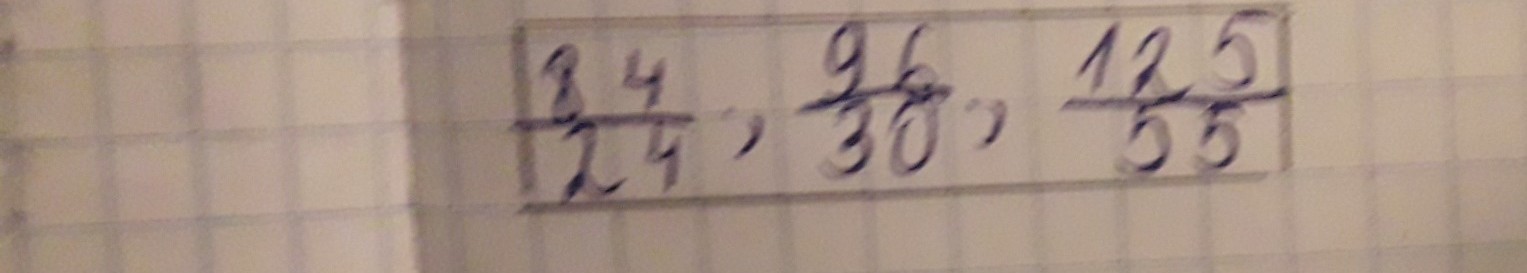 84/24, 96/30, 125/55